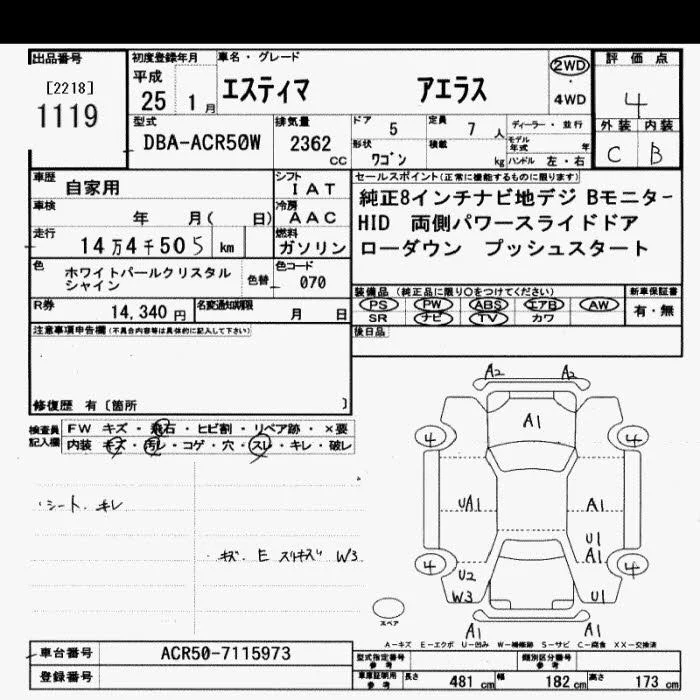 出品番号 初度登録年月 車名・グレード 評価点
[2218] 平成 エスティマ アエラス 2WD 4
1119 25 1月 4WD
型式 排気量 ドア 5 定員 7人 ディーラー・並行 外装 内装
DBA-ACR50W 2362cc 形状 ワゴン 積載 kg モデル年式 年 C B
ハンドル 左・右
車歴 自家用 シフト IAT セールスポイント(正常に機能するものに限ります)
車検 年 月( 日) 冷房 AAC 純正8インチナビ地デジ Bモニター
走行 14万4千505km 燃料 ガソリン HID 両側パワースライドドア
ローダウン プッシュスタート
色 ホワイトパールクリスタルシャイン 色替 色コード 070
装備品(純正品に限り○をつけてください) 新車保証書
R券 14,340円 名変通知期限 月 日 PS PW ABS エアB AW 有・無
SR ナビ TV カワ
注意事項申告欄(不具合内容等は具体的に記入して下さい) 後日品
修復歴 有〔箇所 〕
検査員記入欄 FW キズ・飛石・ヒビ割・リペア跡・×要
内装 キズ・汚レ・コゲ・穴・スレ・キレ・破レ
・シート、キレ
・キズ、E スリキズ W3
A2 A2
A1
4 4
UA1 A1
U1
A1
4 4
U2
W3 U1
A1 A1
スペア
A-キズ E-エクボ U-凹み W-補修跡 S-サビ C-腐食 XX-交換済
車台番号 ACR50-7115973 型式指定番号 参考 類別区分番号 参考
登録番号 車庫証明用 参考 長さ 481cm 幅 182cm 高さ 173cm